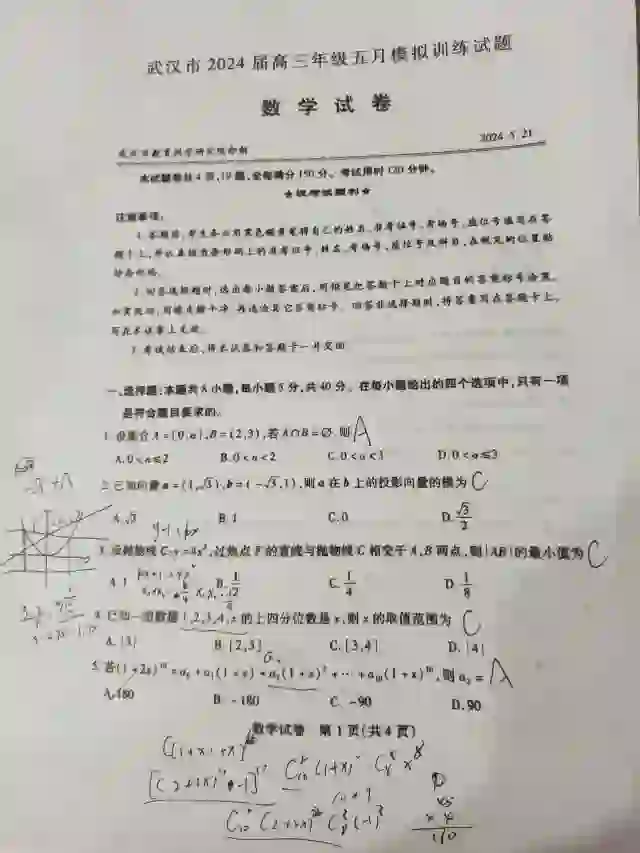 武汉市 2024 届高三年级五月模拟训练试题
数学试卷
武汉市教育科学研究院命制
2024.5.21
本试题卷共4页,19题,全卷满分150分。考试用时120分钟。
★祝考试顺利★
注意事项:
1.答题前,考生务必用黑色碳素笔将自己的姓名、准考证号、考场号、座位号填写在答
题卡上,并认真核准条形码上的准考证号、姓名、考场号、座位号及科目,在规定的位置贴
好条形码。
2.回答选择题时,选出每小题答案后,用铅笔把答题卡上对应题目的答案标号涂黑。
如需改动,用橡皮擦干净 再选涂其它答案标号。回答非选择题时,将答案写在答题卡上。
写在本试卷上无效。
3.考试结束后,将本试卷和答题卡一并交回
一、选择题:本题共8小题,每小题5分,共40分。在每小题给出的四个选项中,只有一项
是符合题目要求的。
1.设集合 A={0,a},B=(2,3),若A∩B=∅,则 A
A.0<a≤2 B.0<a<2 C.0<a<3 D.0<a≤3
2.已知向量 a=(1,√3),b=(-√3,1),则 a 在 b 上的投影向量的模为 C
A.√3 B.1 C.0 D.√3/2
3.设抛物线 C:y=4x²,过焦点 F 的直线与抛物线 C 相交于 A,B 两点,则|AB|的最小值为 C
A.1 B.1/2 C.1/4 D.1/8
4.已知一组数据 1,2,3,4,x 的上四分位数是 x,则 x 的取值范围为 C
A.{3} B.[2,3] C.[3,4] D.{4}
5.若(1+2x)¹⁰=a₀+a₁(1+x)+a₂(1+x)²+⋯+a₁₀(1+x)¹⁰,则 a₂= A
A.180 B.-180 C.-90 D.90
数学试卷 第1页(共4页)